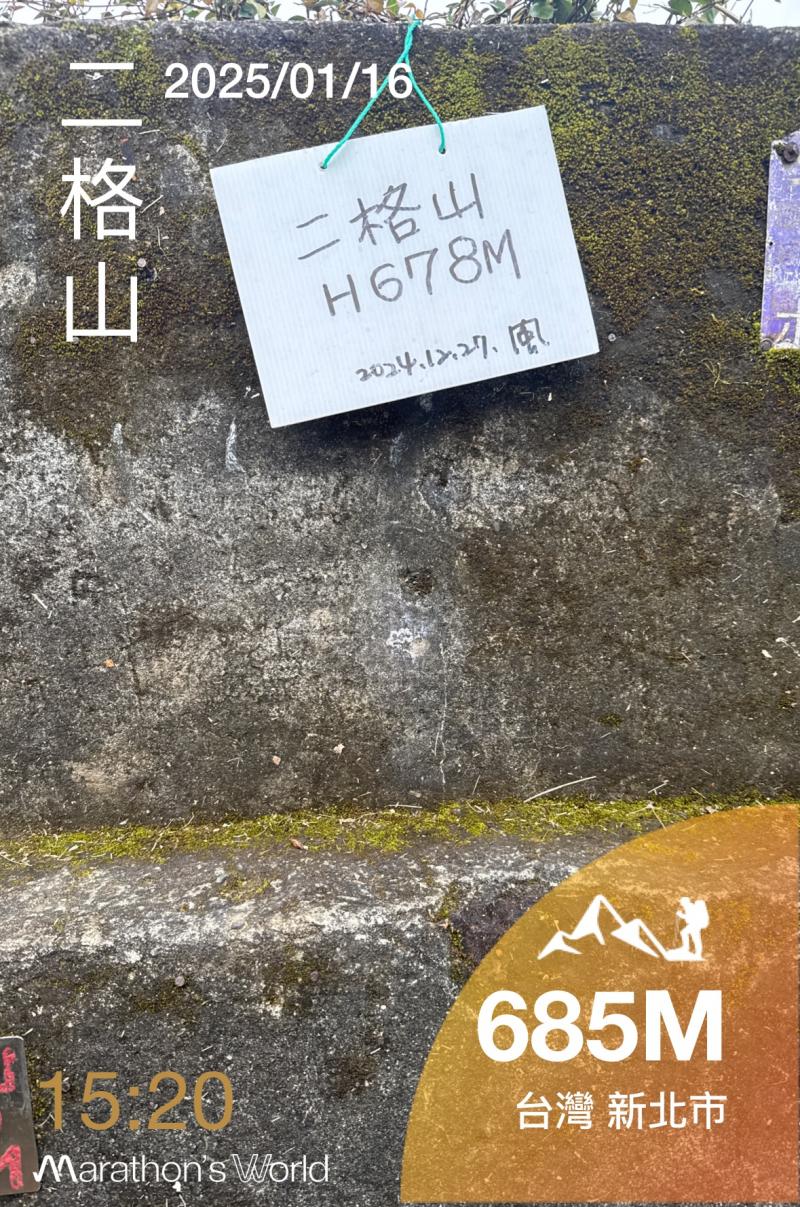 二格山
2025/01/16
二格山
H678M
2024.12.27. 風
685M
台灣 新北市
15:20
Marathon's World